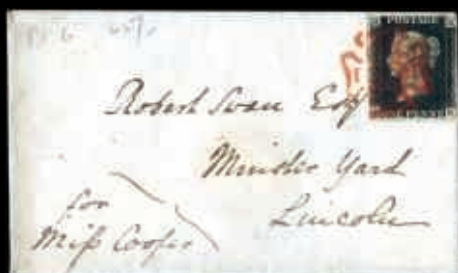 POSTAGE
Robert Swan Esq
Minster Yard
Lincoln
for
Miss Cooper